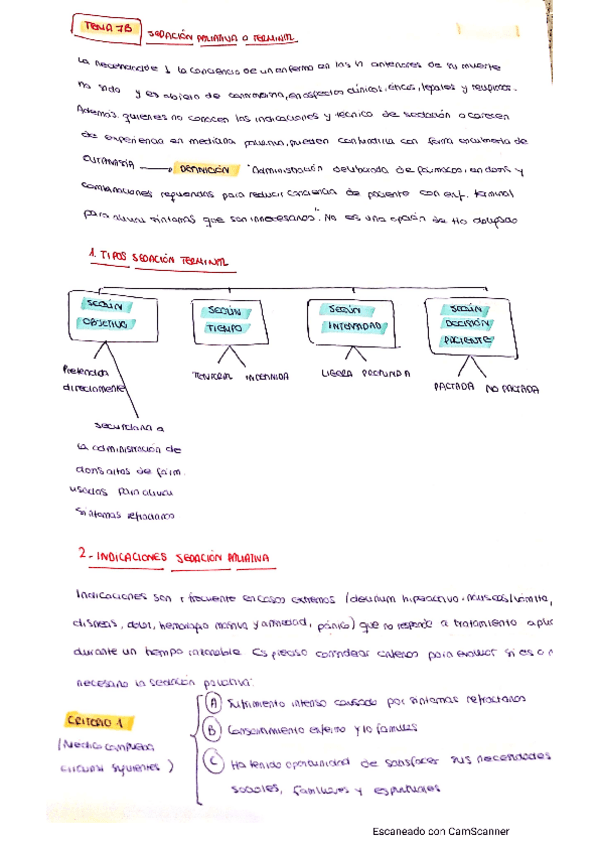 TEMA 7B SEDACIÓN PALIATIVA O TERMINAL
La necesidad de la conciencia de un enfermo en las anteriores de su muerte
ha sido y es objeto de controversia, en aspectos clínicos, éticos, legales y religiosos.
Además, quienes no conocen las indicaciones y técnica de sedación o carecen
de experiencia en medicina paliativa, pueden confundirla con forma encubierta de
EUTANASIA → DEFINICIÓN "Administración deliberada de fármacos, en dosis y
combinaciones requeridas para reducir conciencia de paciente con enf. terminal
para aliviar síntomas que son innecesarios". No es una opción de tto
1. TIPOS SEDACIÓN TERMINAL
SEGÚN OBJETIVO
SEGÚN TIEMPO
SEGÚN INTENSIDAD
SEGÚN DECISIÓN PACIENTE
Pretendida directamente
TEMPORAL INDEFINIDA
LIGERA PROFUNDA
PACTADA NO PACTADA
secundaria a
la administración de
dosis altas de fárm.
usados para aliviar
síntomas refractarios
2.- INDICACIONES SEDACIÓN PALIATIVA
Indicaciones son + frecuente en casos extremos (delirium hiperactivo, nauseas/vómito,
disnea, dolor, hemorragia masiva y ansiedad, pánico) que no responde a tratamiento
durante un tiempo intolerable. Es preciso considerar criterios para evaluar si es o n
necesario la sedación paliativa:
CRITERIO 1
(Médico comprueba
circunst siguientes)
A Sufrimiento intenso causado por síntomas refractarios
B Consentimiento enfermo y/o familiares
C Ha tenido oportunidad de satisfacer sus necesidades
sociales, familiares y espirituales
Escaneado con CamScanner